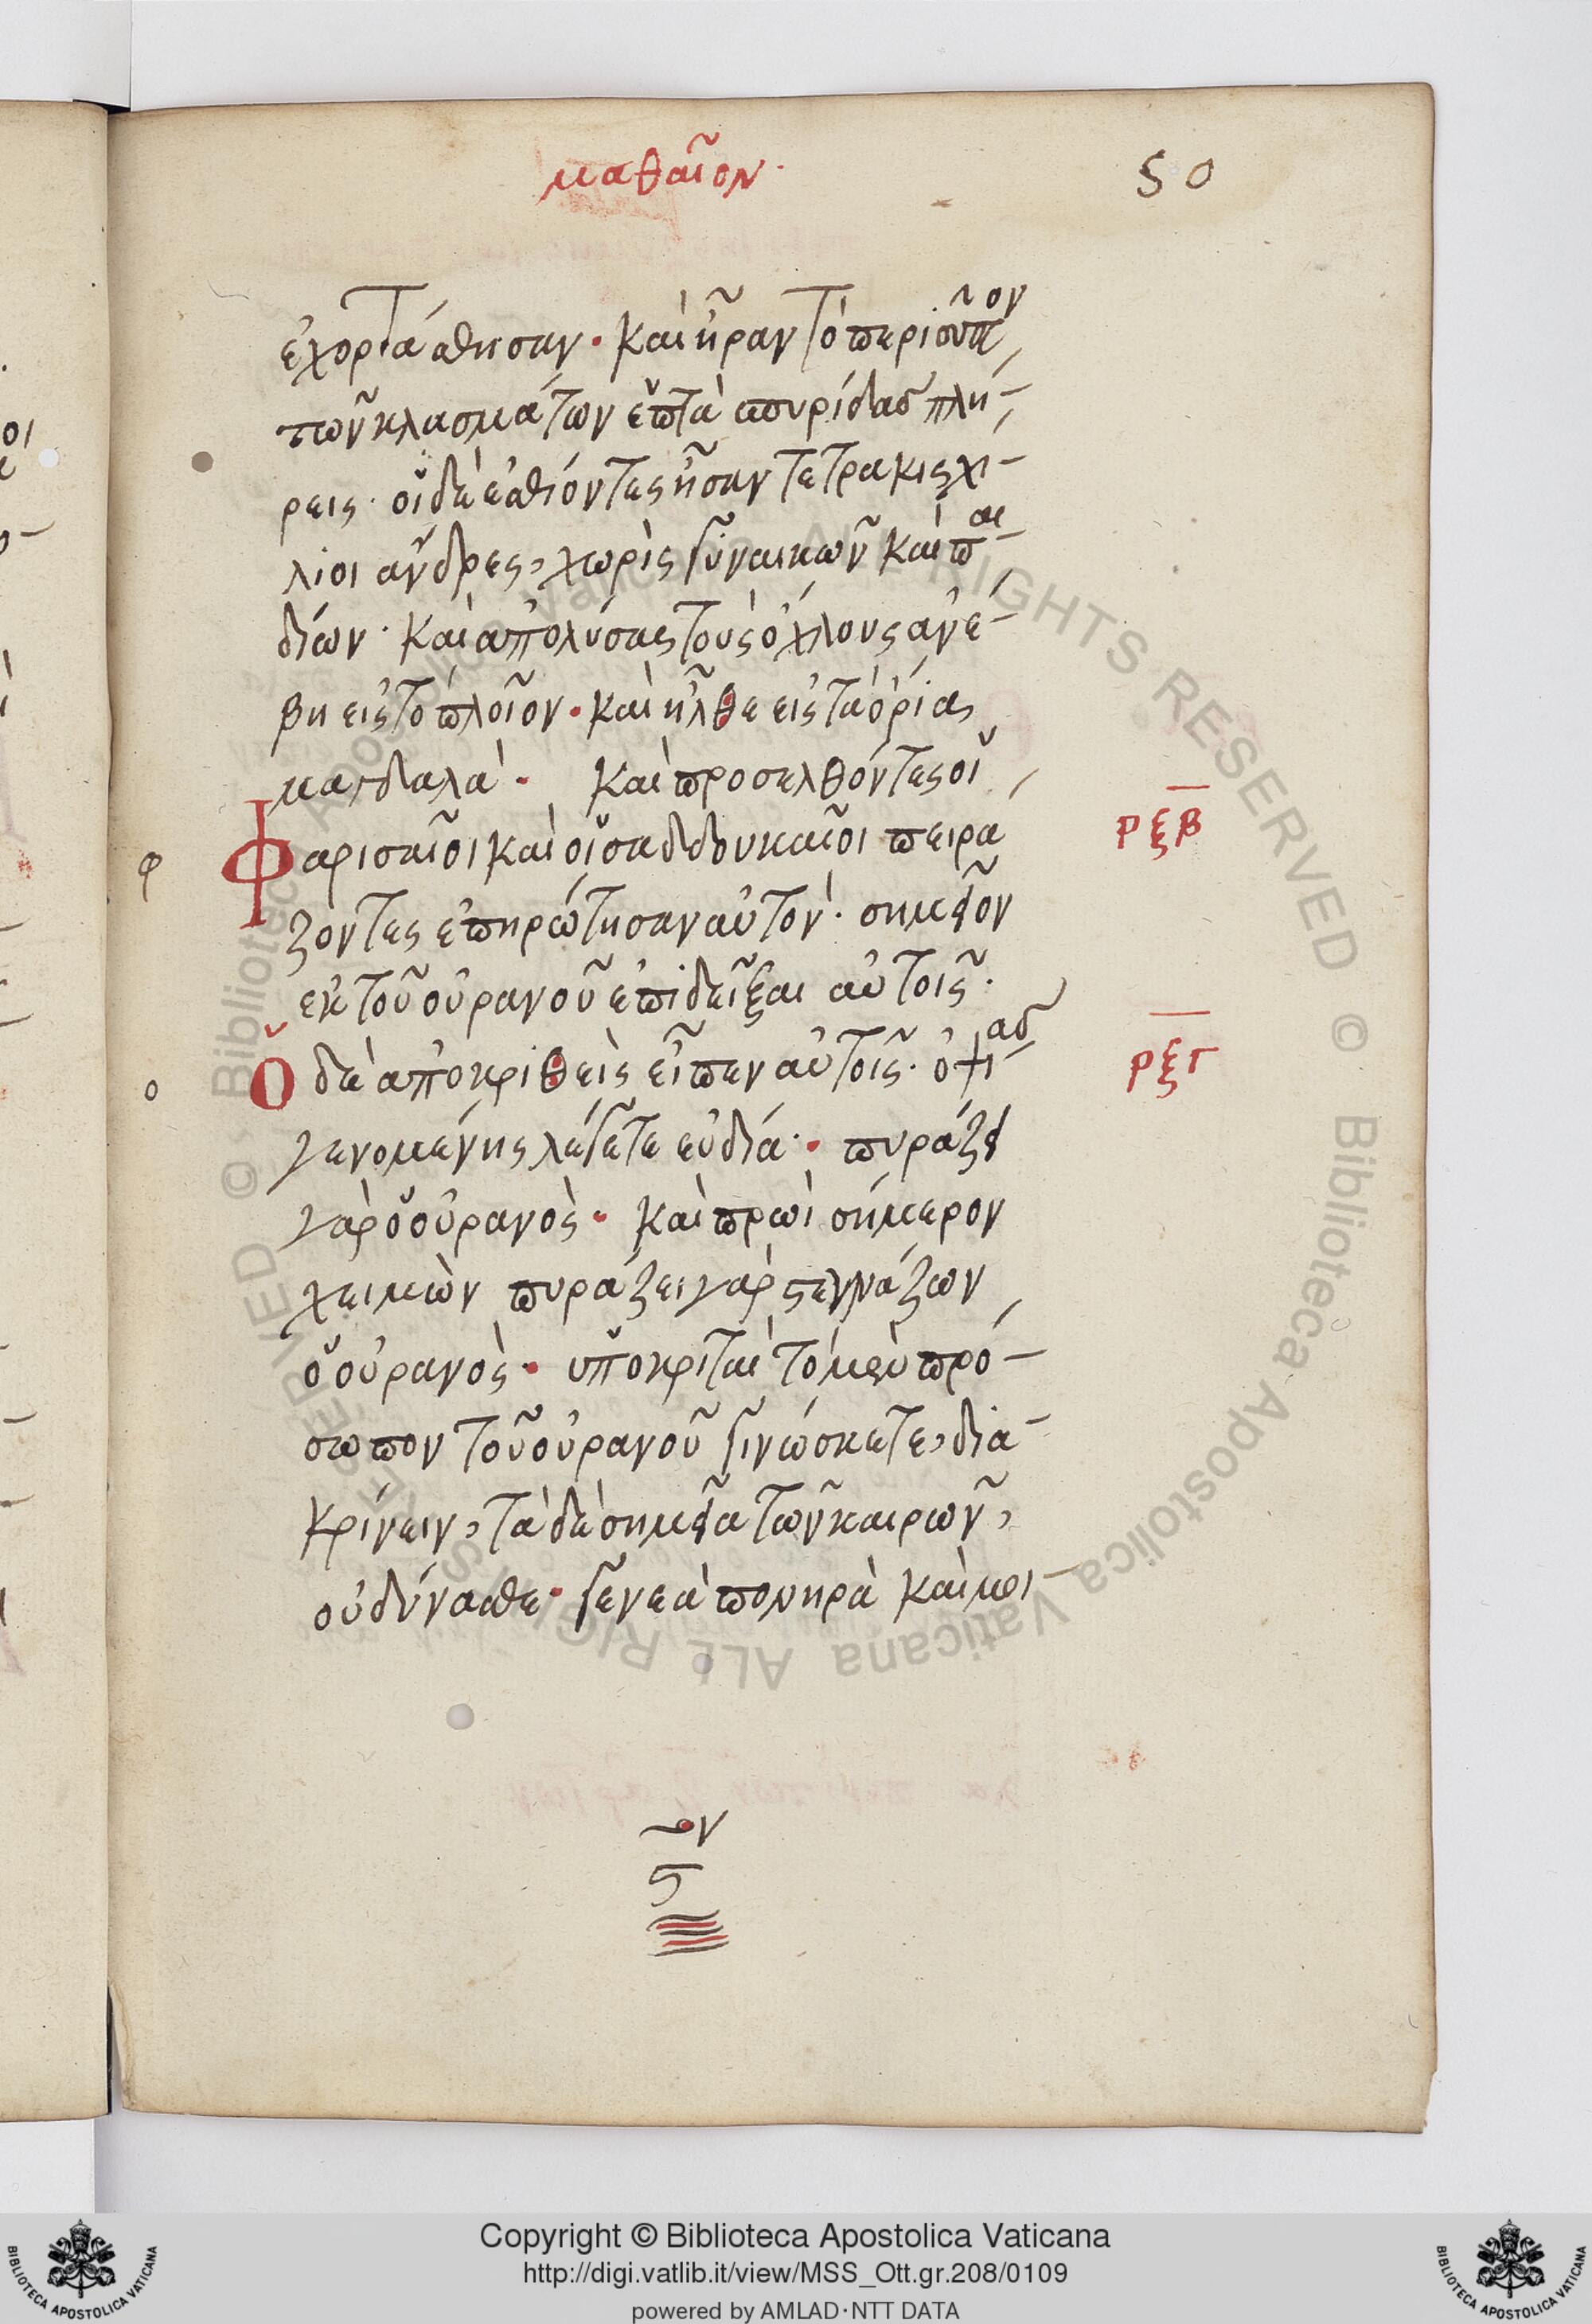 μαθαῖον·
50
ἐχορτάσθησαν· καὶ ἦραν τὸ περισσεῦον
τῶν κλασμάτων ἑπτὰ σπυρίδας πλή-
ρεις· οἱ δὲ ἐσθίοντες ἦσαν τετρακισχι-
λιοι ἄνδρες, χωρὶς γυναικῶν καὶ παι-
δίων· καὶ ἀπολύσας τοὺς ὄχλους ἀνέ-
βη εἰς τὸ πλοῖον· καὶ ἦλθε εἰς τὰ ὅρια
μαγδαλά· καὶ προσελθόντες οἱ
Φαρισαῖοι καὶ οἱ σαδδουκαῖοι πειρα
ρξβ
φ
ζοντες ἐπηρώτησαν αὐτὸν· σημεῖον
ἐκ τοῦ οὐρανοῦ ἐπιδεῖξαι αὐτοῖς·
Ὁ δὲ ἀποκριθεὶς εἶπεν αὐτοῖς· ὀψίας
ρξγ
ο
γενομένης λέγετε εὐδία· πυράζει
γὰρ ὁ οὐρανὸς· καὶ πρωὶ σήμερον
χειμὼν πυράζει γὰρ στυγνάζων
ὁ οὐρανὸς· ὑποκριταὶ τὸ μὲν πρό-
σωπον τοῦ οὐρανοῦ γινώσκετε, δια-
κρίνειν, τὰ δὲ σημεῖα τῶν καιρῶν,
οὐ δύνασθε· γενεὰ πονηρὰ καὶ μοι-
Copyright © Biblioteca Apostolica Vaticana
http://digi.vatlib.it/view/MSS_Ott.gr.208/0109
powered by AMLAD·NTT DATA